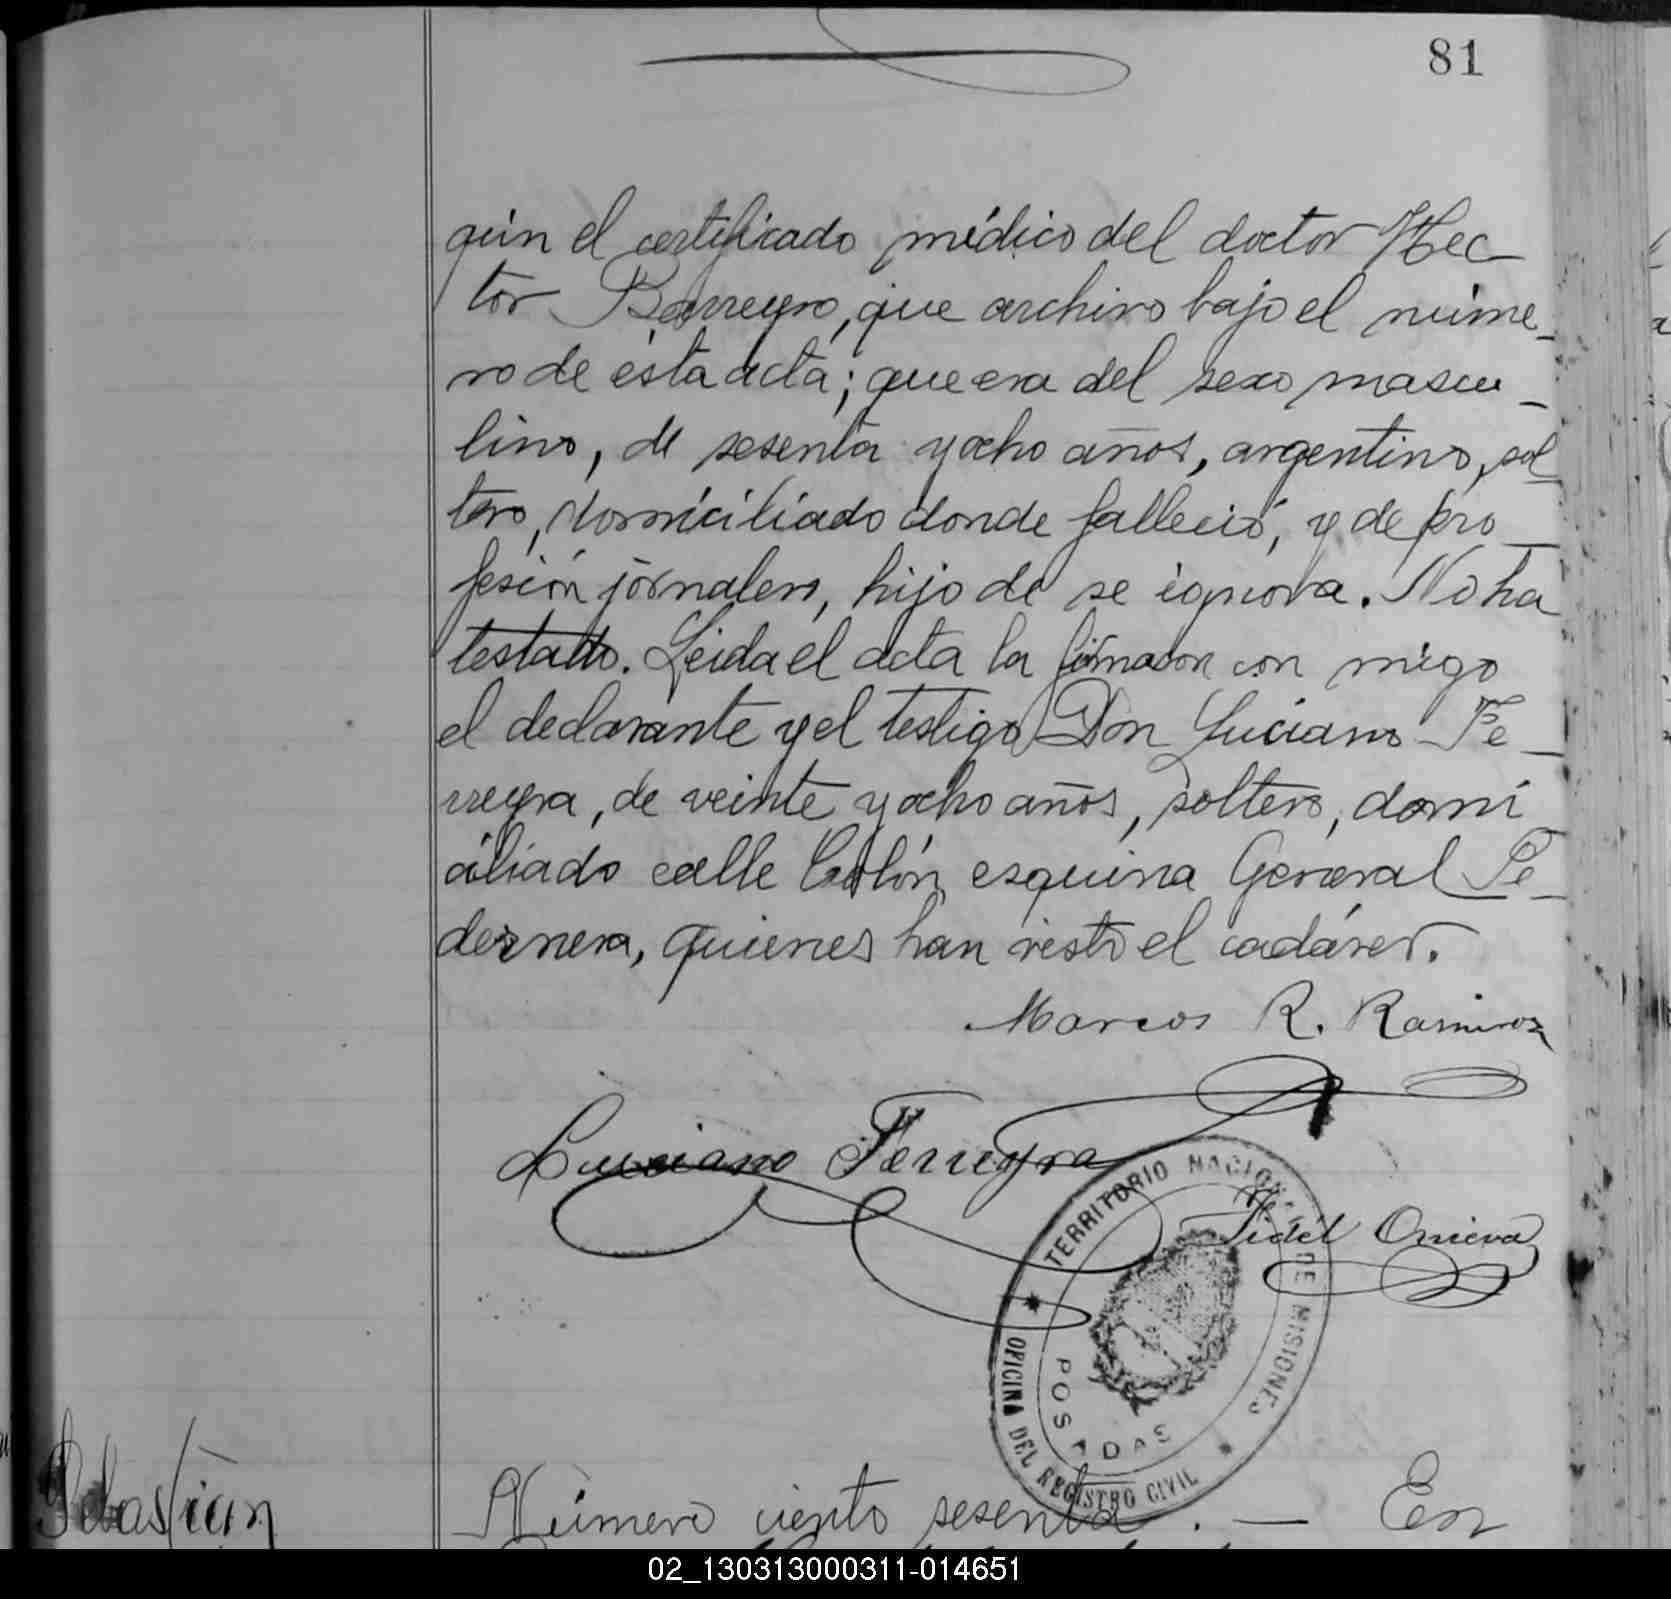 81
gún el certificado médico del doctor Hec
tor Barreyro, que archivo bajo el núme-
ro de ésta acta; que era del sexo mascu-
lino, de sesenta y ocho años, argentino, sol
tero, domiciliado donde falleció, y de pro
fesión jornalero, hijo de se ignora. No ha
testado. Leida el acta la firmaron con migo
el declarante y el testigo Don Luciano Fe-
rreyra, de veinte y ocho años, soltero, domi
ciliado calle Colón esquina General Pe-
dernera, quienes han visto el cadáver.
Marcos R. Ramirez
Luciano Ferreyra
Fidel Onieva
TERRITORIO NACIONAL DE MISIONES
OFICINA DEL REGISTRO CIVIL
POSADAS
Sebastián
Número ciento sesenta. — En
02_130313000311-014651